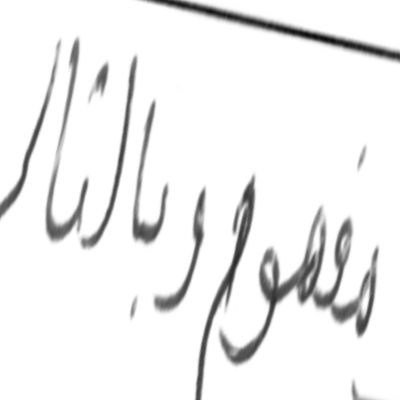 مفهوم وبالتال